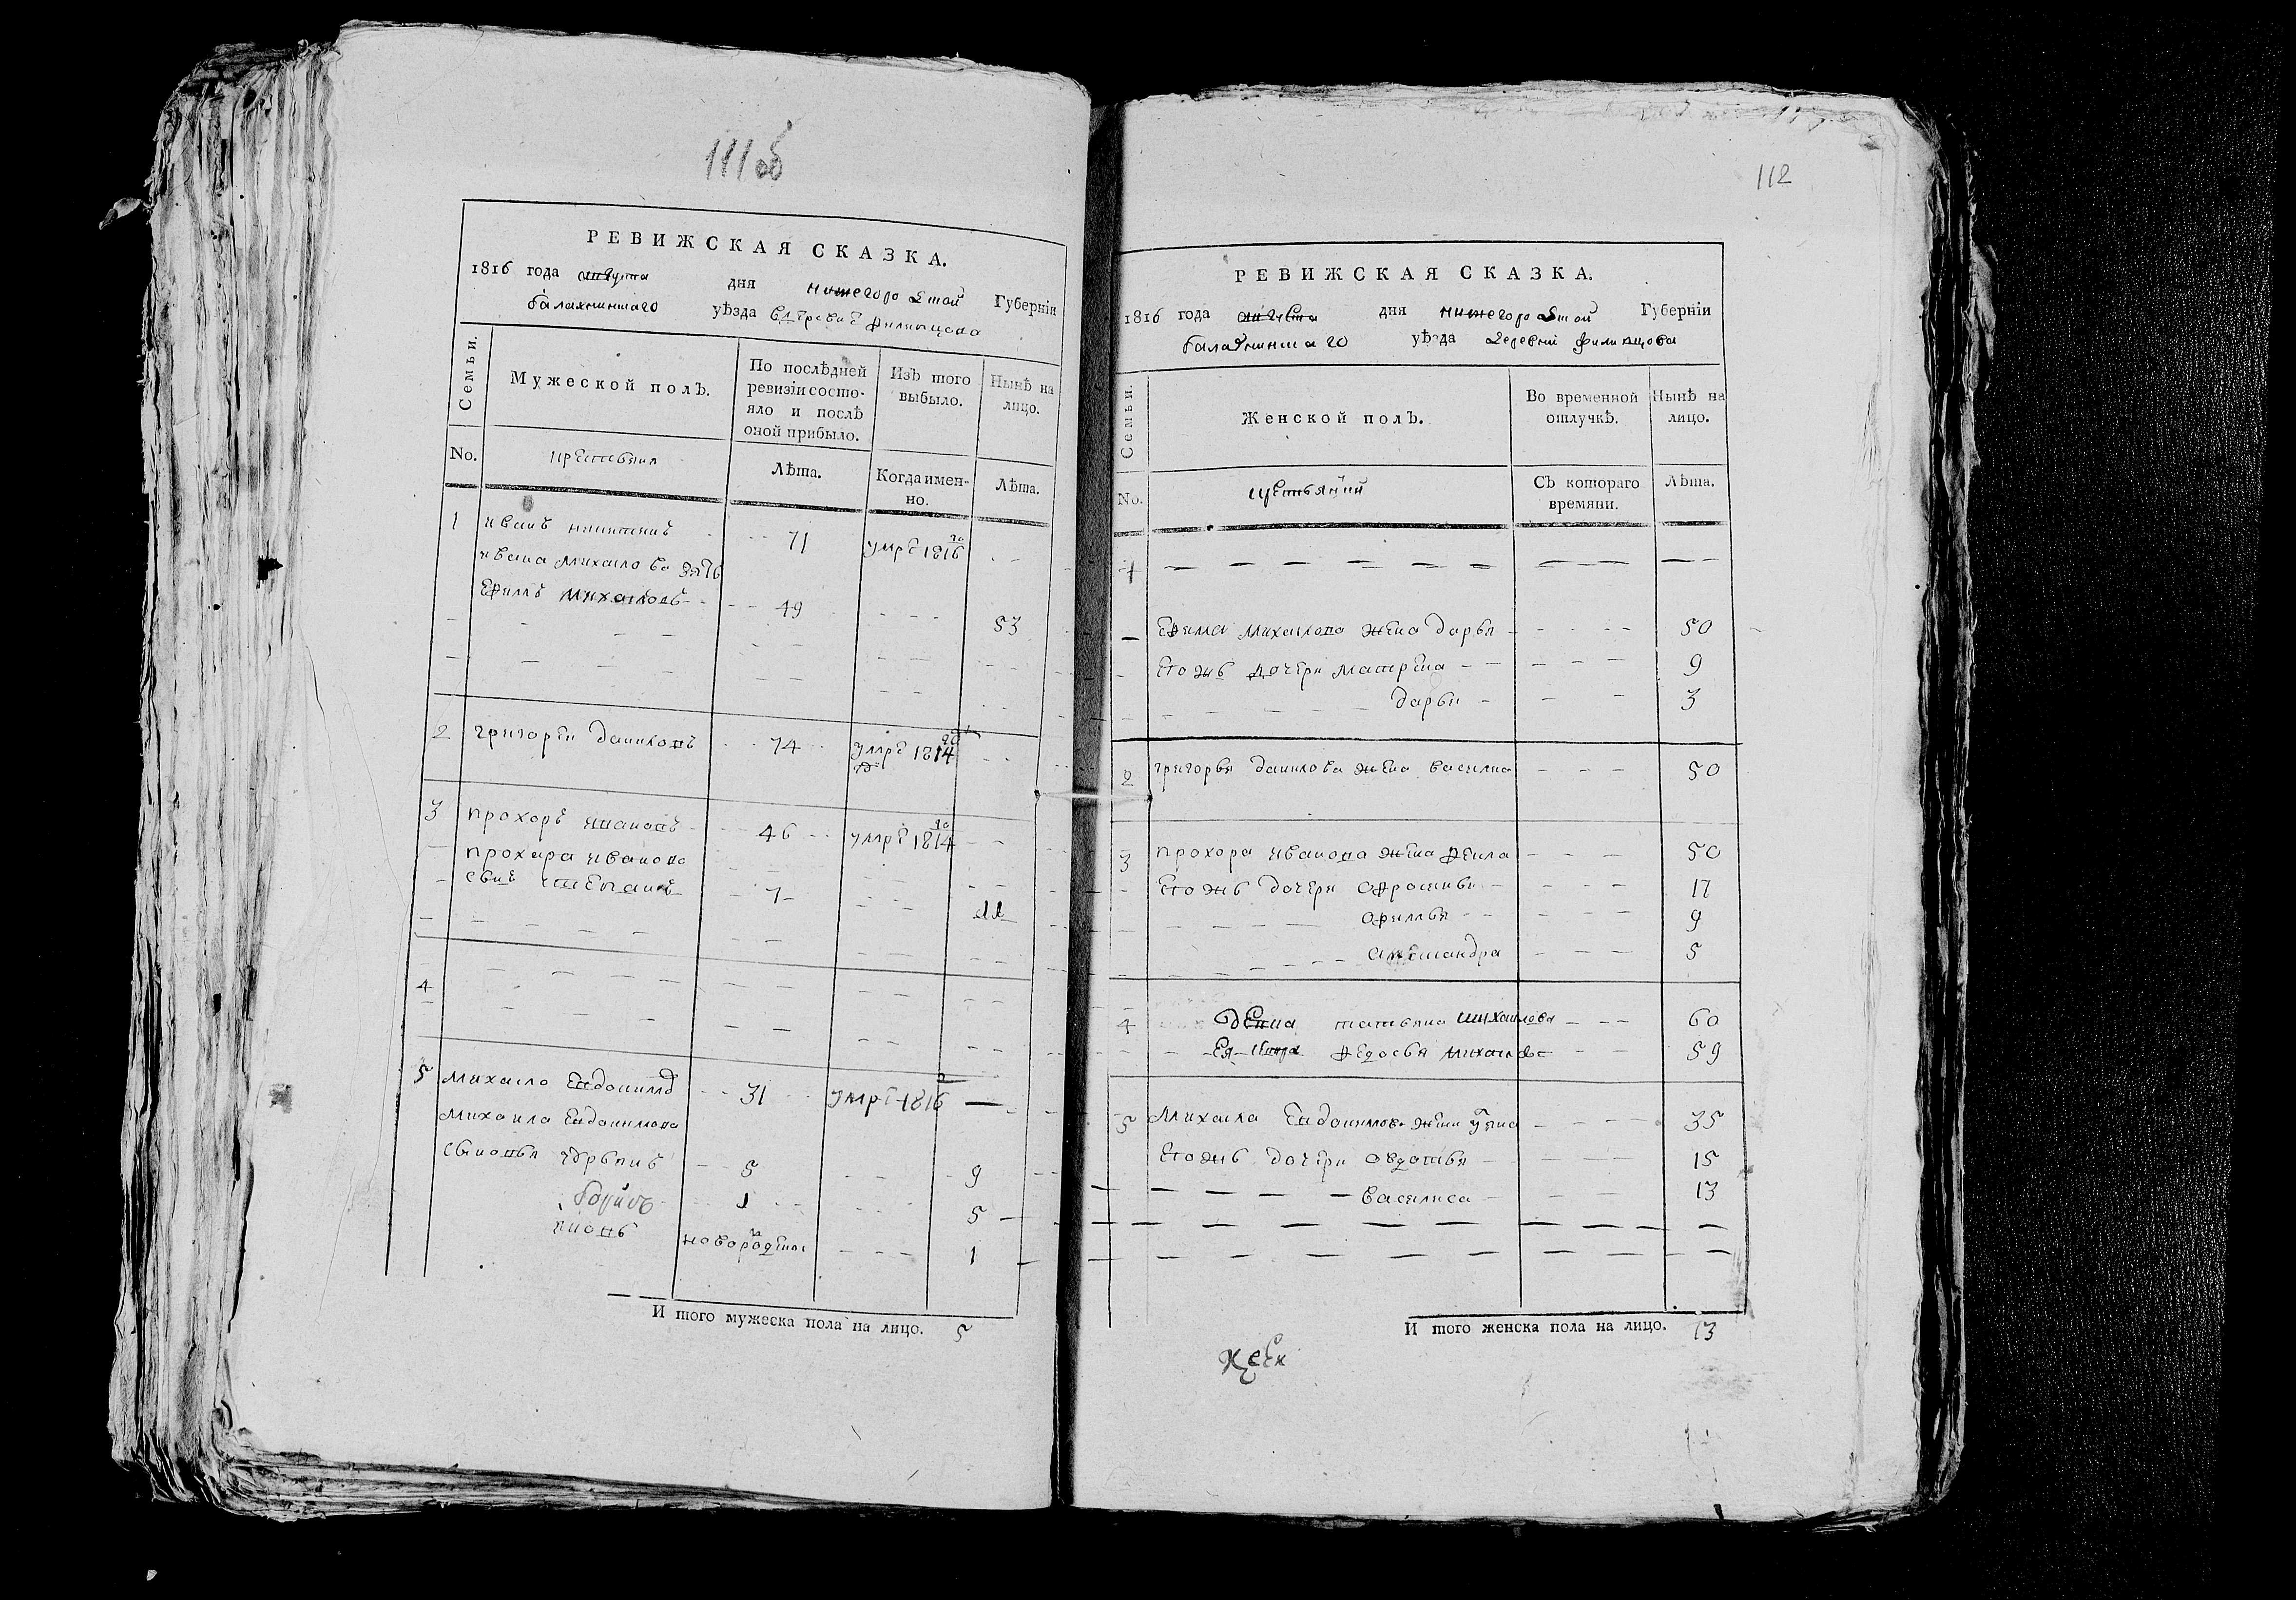 111 об
РЕВИЖСКАЯ СКАЗКА.
1816 года августа дня нижегородской Губерніи
балахнинскаго уѣзда
Семьи.
Мужеской полъ.
По послѣдней ревизіи состояло и послѣ оной прибыло.
Изъ того выбыло.
Нынѣ на лицо.
No.
крестьяня
Лѣта.
Когда именно.
Лѣта.
1 иванъ никитинъ 71 умре 1816го
ивана михаилова зять
ефимъ михаиловъ 49 53
2 григореи даниловъ 74 умре 1814го
3 прохоръ ивановъ 46 умре 1814го
прохора иванова
сынъ степанъ 7 11
4
5 михаило евдокимов 31 умре 1816
михаила евдокимова
сыновья 5 9
1 5
новорожденои 1
И того мужеска пола на лицо. 5
112
РЕВИЖСКАЯ СКАЗКА.
1816 года августа дня нижегородской Губерніи
балахнинскаго уѣзда деревни филипцова
Семьи.
Женской полъ.
Во временной отлучкѣ.
Нынѣ на лицо.
No.
Съ котораго времяни.
Лѣта.
1
ефима михаилова жена дарья 50
его жъ дочери матрена 9
дарья 3
2 григорья данилова жена 50
3 прохора иванова жена фекла 50
его жъ дочери афросинья 17
афимья 9
александра 5
4 девка татьяна михаилова 60
ея сестра федосья михаилова 59
5 михаила евдокимова жена 35
его жъ дочери авдотья 15
василиса 13
И того женска пола на лицо. 13